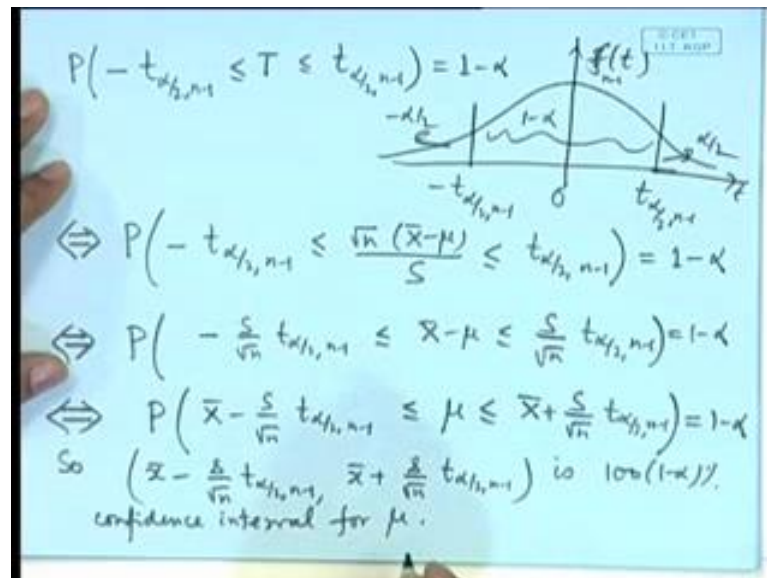 P(- t_{α/2, n-1} ≤ T ≤ t_{α/2, n-1}) = 1-α
f_{n-1}(t)
-α/2
1-α
α/2
-t_{α/2, n-1}
0
t_{α/2, n-1}
t
⇔ P(- t_{α/2, n-1} ≤ √n (x̄-μ)/S ≤ t_{α/2, n-1}) = 1-α
⇔ P(- S/√n t_{α/2, n-1} ≤ x̄-μ ≤ S/√n t_{α/2, n-1}) = 1-α
⇔ P(x̄ - S/√n t_{α/2, n-1} ≤ μ ≤ x̄ + S/√n t_{α/2, n-1}) = 1-α
So (x̄ - s/√n t_{α/2, n-1}, x̄ + s/√n t_{α/2, n-1}) is 100(1-α)%
confidence interval for μ.